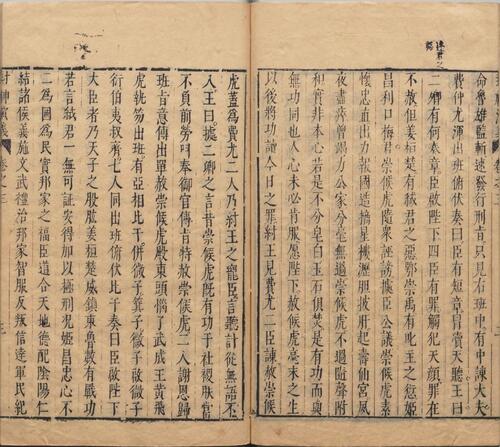 命魯雄監斬速發行刑旨只見右班中有中諫大夫
費仲尤渾出班俯伏奏曰臣有短章冒瀆天聽王曰
二卿有何奏章臣啟陛下四臣有罪觸犯天顏罪在
不赦但姜桓楚有弒君之惡鄂崇禹有叱主之愆姬
昌利口侮君崇侯虎隨衆誣謗據臣公議崇侯虎素
懷忠直出力報國造摘星樓瀝膽披肝起壽仙宮夙
夜盡瘁曾竭力公家分毫無過崇侯虎不過隨聲附
和實非本心若是不分皂白玉石俱焚是有功而與
無功同也人心未必肯服愿陛下赦侯虎毫末之生
以後將功贖今日之罪紂王見費尤二臣諫赦崇侯
虎蓋為費尤二人乃紂王之寵臣言聽計從無語不
入王曰據二卿之言昔崇侯虎既有功于社稷朕當
不負前勞門奉御官傳旨特赦崇侯虎二人謝恩歸
班旨意傳出單赦崇侯虎殿東頭惱了武成王黃飛
虎執笏出班有亞相比干併微子箕子微子啟微子
衍伯夷叔齊七人同出班俯伏比干奏曰臣啟陛下
大臣者乃天子之股肱姜桓楚威鎮東魯數有戰功
若言弒君一無可証安得加以極刑況姬昌忠心不
二為國為民實邦家之福臣道合天地德配陰陽仁
結諸侯義施文武禮治邦家智服反叛信達軍民紀
封神演義
卷之三
三